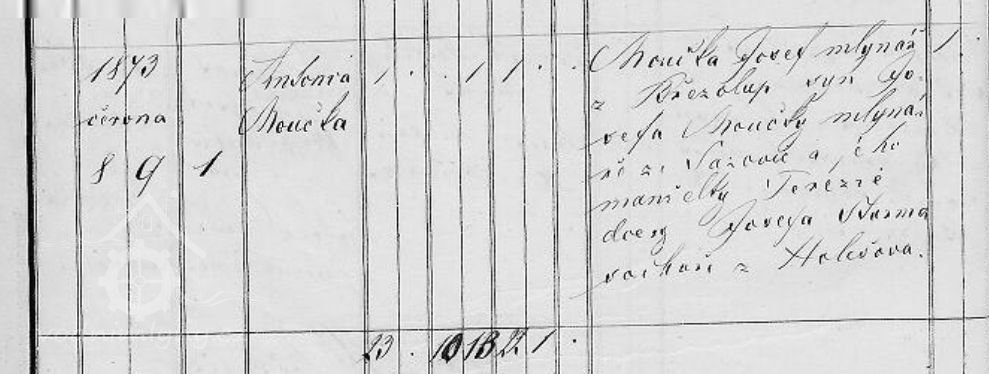 1873
června
8 9 1
Antonia
Moučka
1 . . 1 1 . .
Moučka Josef mlynář 1 .
z Březolup syn Jo-
sefa Moučky mlyná-
ře ze Sazovic a jeho
manželky Terezie
dcery Josefa
z Holešova.
23 . 10 13 22 1 .